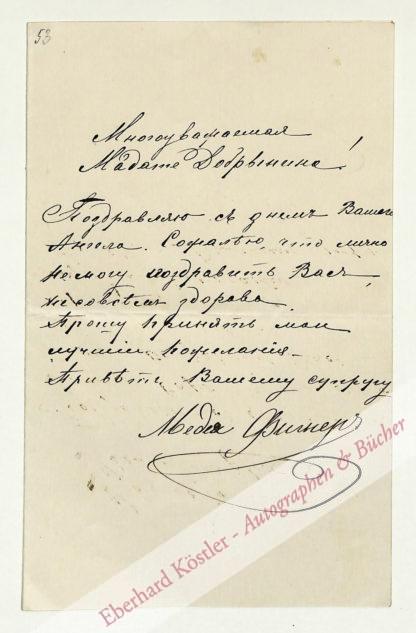 53
Многоуважаемая
Madame Добрынина!
Поздравляю съ днемъ Вашего
Ангела. Сожалѣю, что лично
не могу поздравить Васъ,
не совсѣмъ здорова.
Прошу принять мои
лучшія пожеланія.
Привѣтъ Вашему супругу
Медея Фигнеръ
Eberhard Köstler - Autographen & Bücher